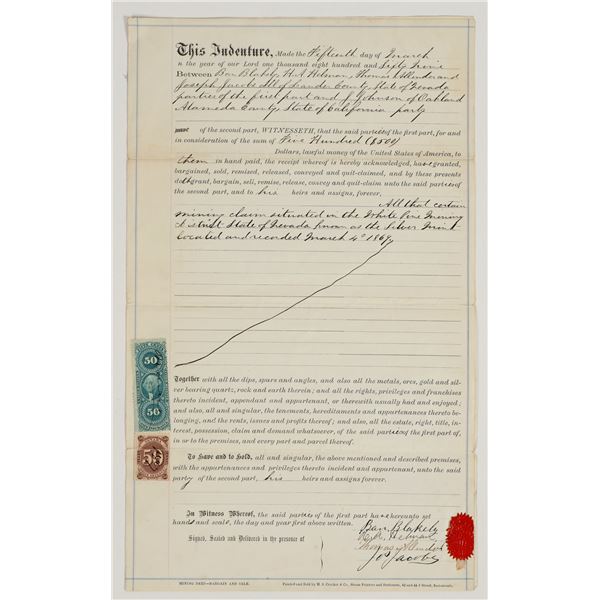 This Indenture, Made the Fifteenth day of March
n the year of our Lord one thousand eight hundred and Sixty Nine
Between Ban Blakely, H.A. Helman, Thomas and
Joseph Jacobs All of Lander County State of Nevada
parties of the first part and J. Johnson of Oakland
Alameda County State of California party
of the second part, WITNESSETH, that the said parties of the first part, for and
in consideration of the sum of Five Hundred ($500)
Dollars, lawful money of the United States of America, to
them in hand paid, the receipt whereof is hereby acknowledged, have granted,
bargained, sold, remised, released, conveyed and quit-claimed, and by these presents
do grant, bargain, sell, remise, release, convey and quit-claim unto the said part of
the second part, and to his heirs and assigns, forever,
All that certain
mining claim situated in the White Pine Mining
District State of Nevada known as the Silver Mint
Located and recorded March 4th 1869
Together with all the dips, spurs and angles, and also all the metals, ores, gold and sil-
ver bearing quartz, rock and earth therein; and all the rights, privileges and franchises
thereto incident, appendant and appurtenant, or therewith usually had and enjoyed;
and also, all and singular, the tenements, hereditaments and appurtenances thereto belong-
ing, and the rents, issues and profits thereof; and also, all the estate, right, title, in-
terest, possession, claim and demand whatsoever, of the said parties of the first part of,
in or to the premises, and every part and parcel thereof.
To Have and to Hold, all and singular, the above mentioned and described premises,
with the appurtenances and privileges thereto incident and appurtenant, unto the said
party of the second part, his heirs and assigns forever.
In Witness Whereof, the said parties of the first part have hereunto set
hands and seals, the day and year first above written.
Signed, Sealed and Delivered in the presence of
Ban Blakely
H.A. Helman
Thomas
Jos Jacobs
50
50
5
MINING DEED—BARGAIN AND SALE.
Printed and Sold by H. S. Crocker & Co., Steam Printers and Stationers, 42 and 44 J Street, Sacramento.